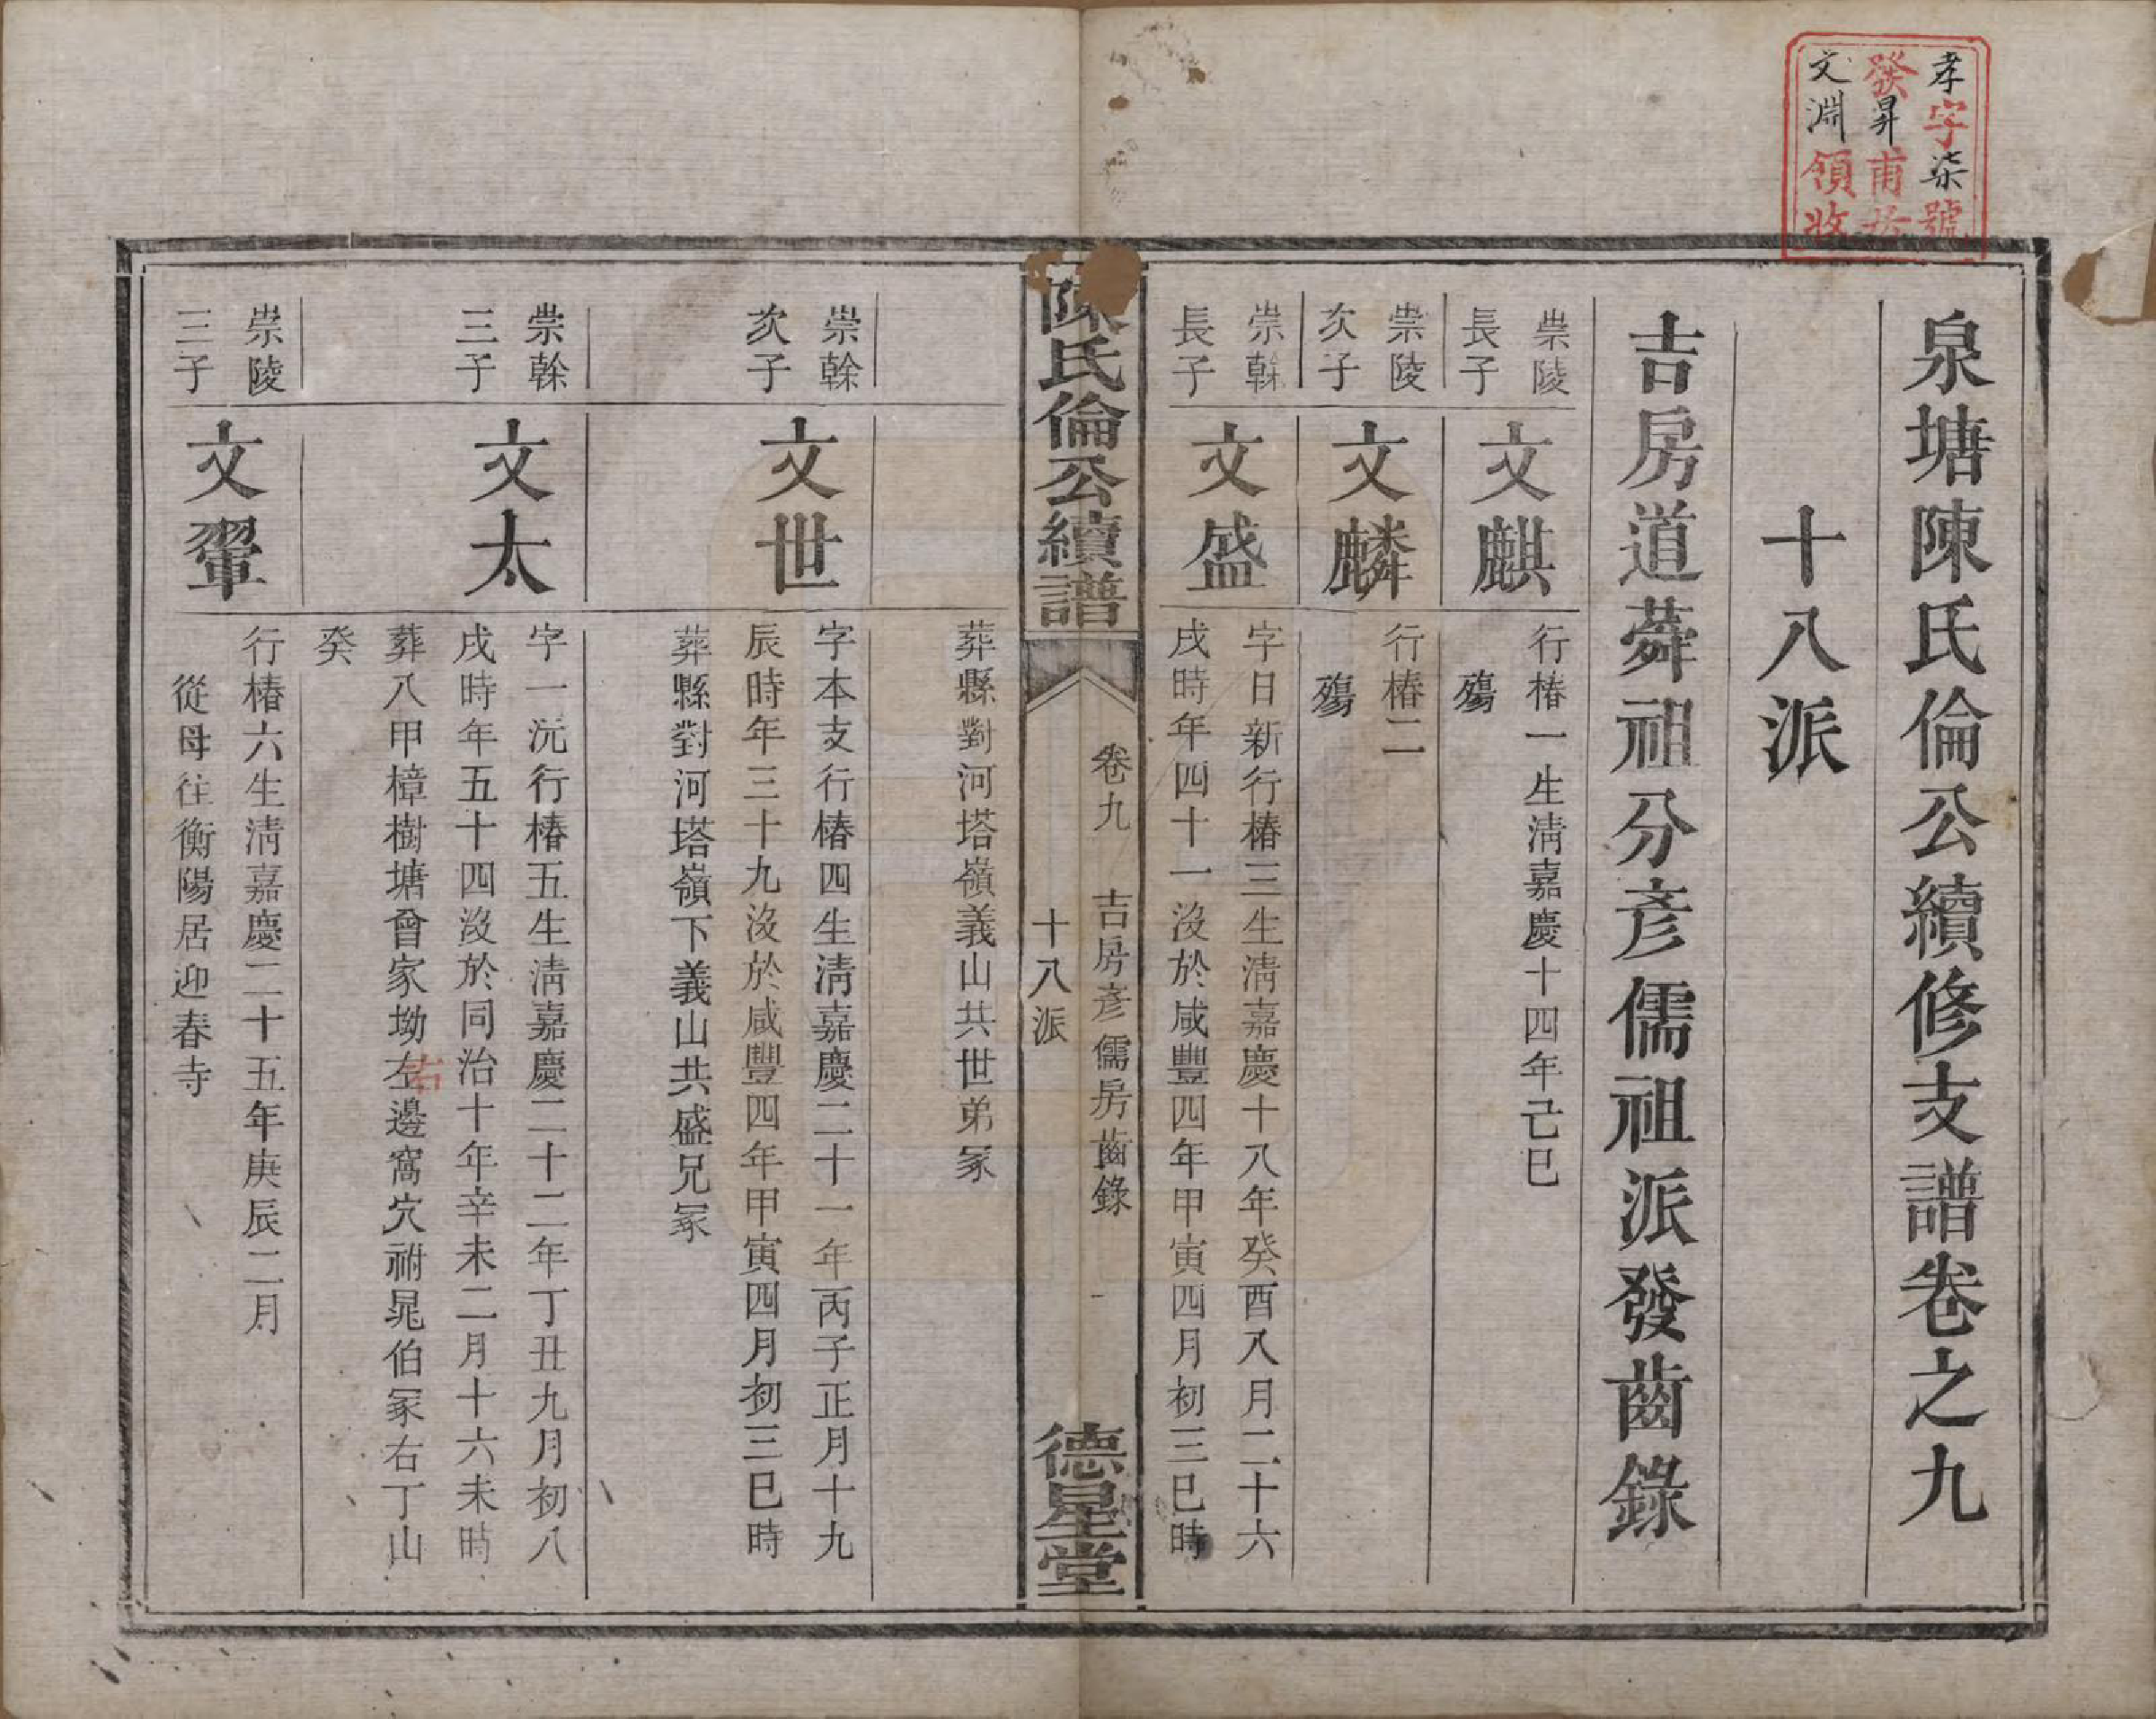 孝字柒號
發昇甫
文淵領收
泉塘陳氏倫公續修支譜卷之九
十八派
吉房道蕣祖分彥儒祖派發齒錄
崇陵
長子
文麒
行椿一生淸嘉慶十四年己巳
殤
崇陵
次子
文麟
行椿二
殤
崇榦
長子
文盛
字日新行椿三生淸嘉慶十八年癸酉八月二十六
戌時年四十一沒於咸豐四年甲寅四月初三巳時
陳氏倫公續譜
卷九 吉房彥儒房齒錄 一
十八派
德星堂
葬縣對河塔嶺義山共世弟冢
崇榦
次子
文世
字本支行椿四生淸嘉慶二十一年丙子正月十九
辰時年三十九沒於咸豐四年甲寅四月初三巳時
葬縣對河塔嶺下義山共盛兄冢
崇榦
三子
文太
字一沅行椿五生淸嘉慶二十二年丁丑九月初八
戌時年五十四沒於同治十年辛未二月十六未時
葬八甲樟樹塘曾家坳左右邊窩穴祔晃伯冢右丁山
癸
崇陵
三子
文翬
行椿六生淸嘉慶二十五年庚辰二月
從母往衡陽居迎春寺